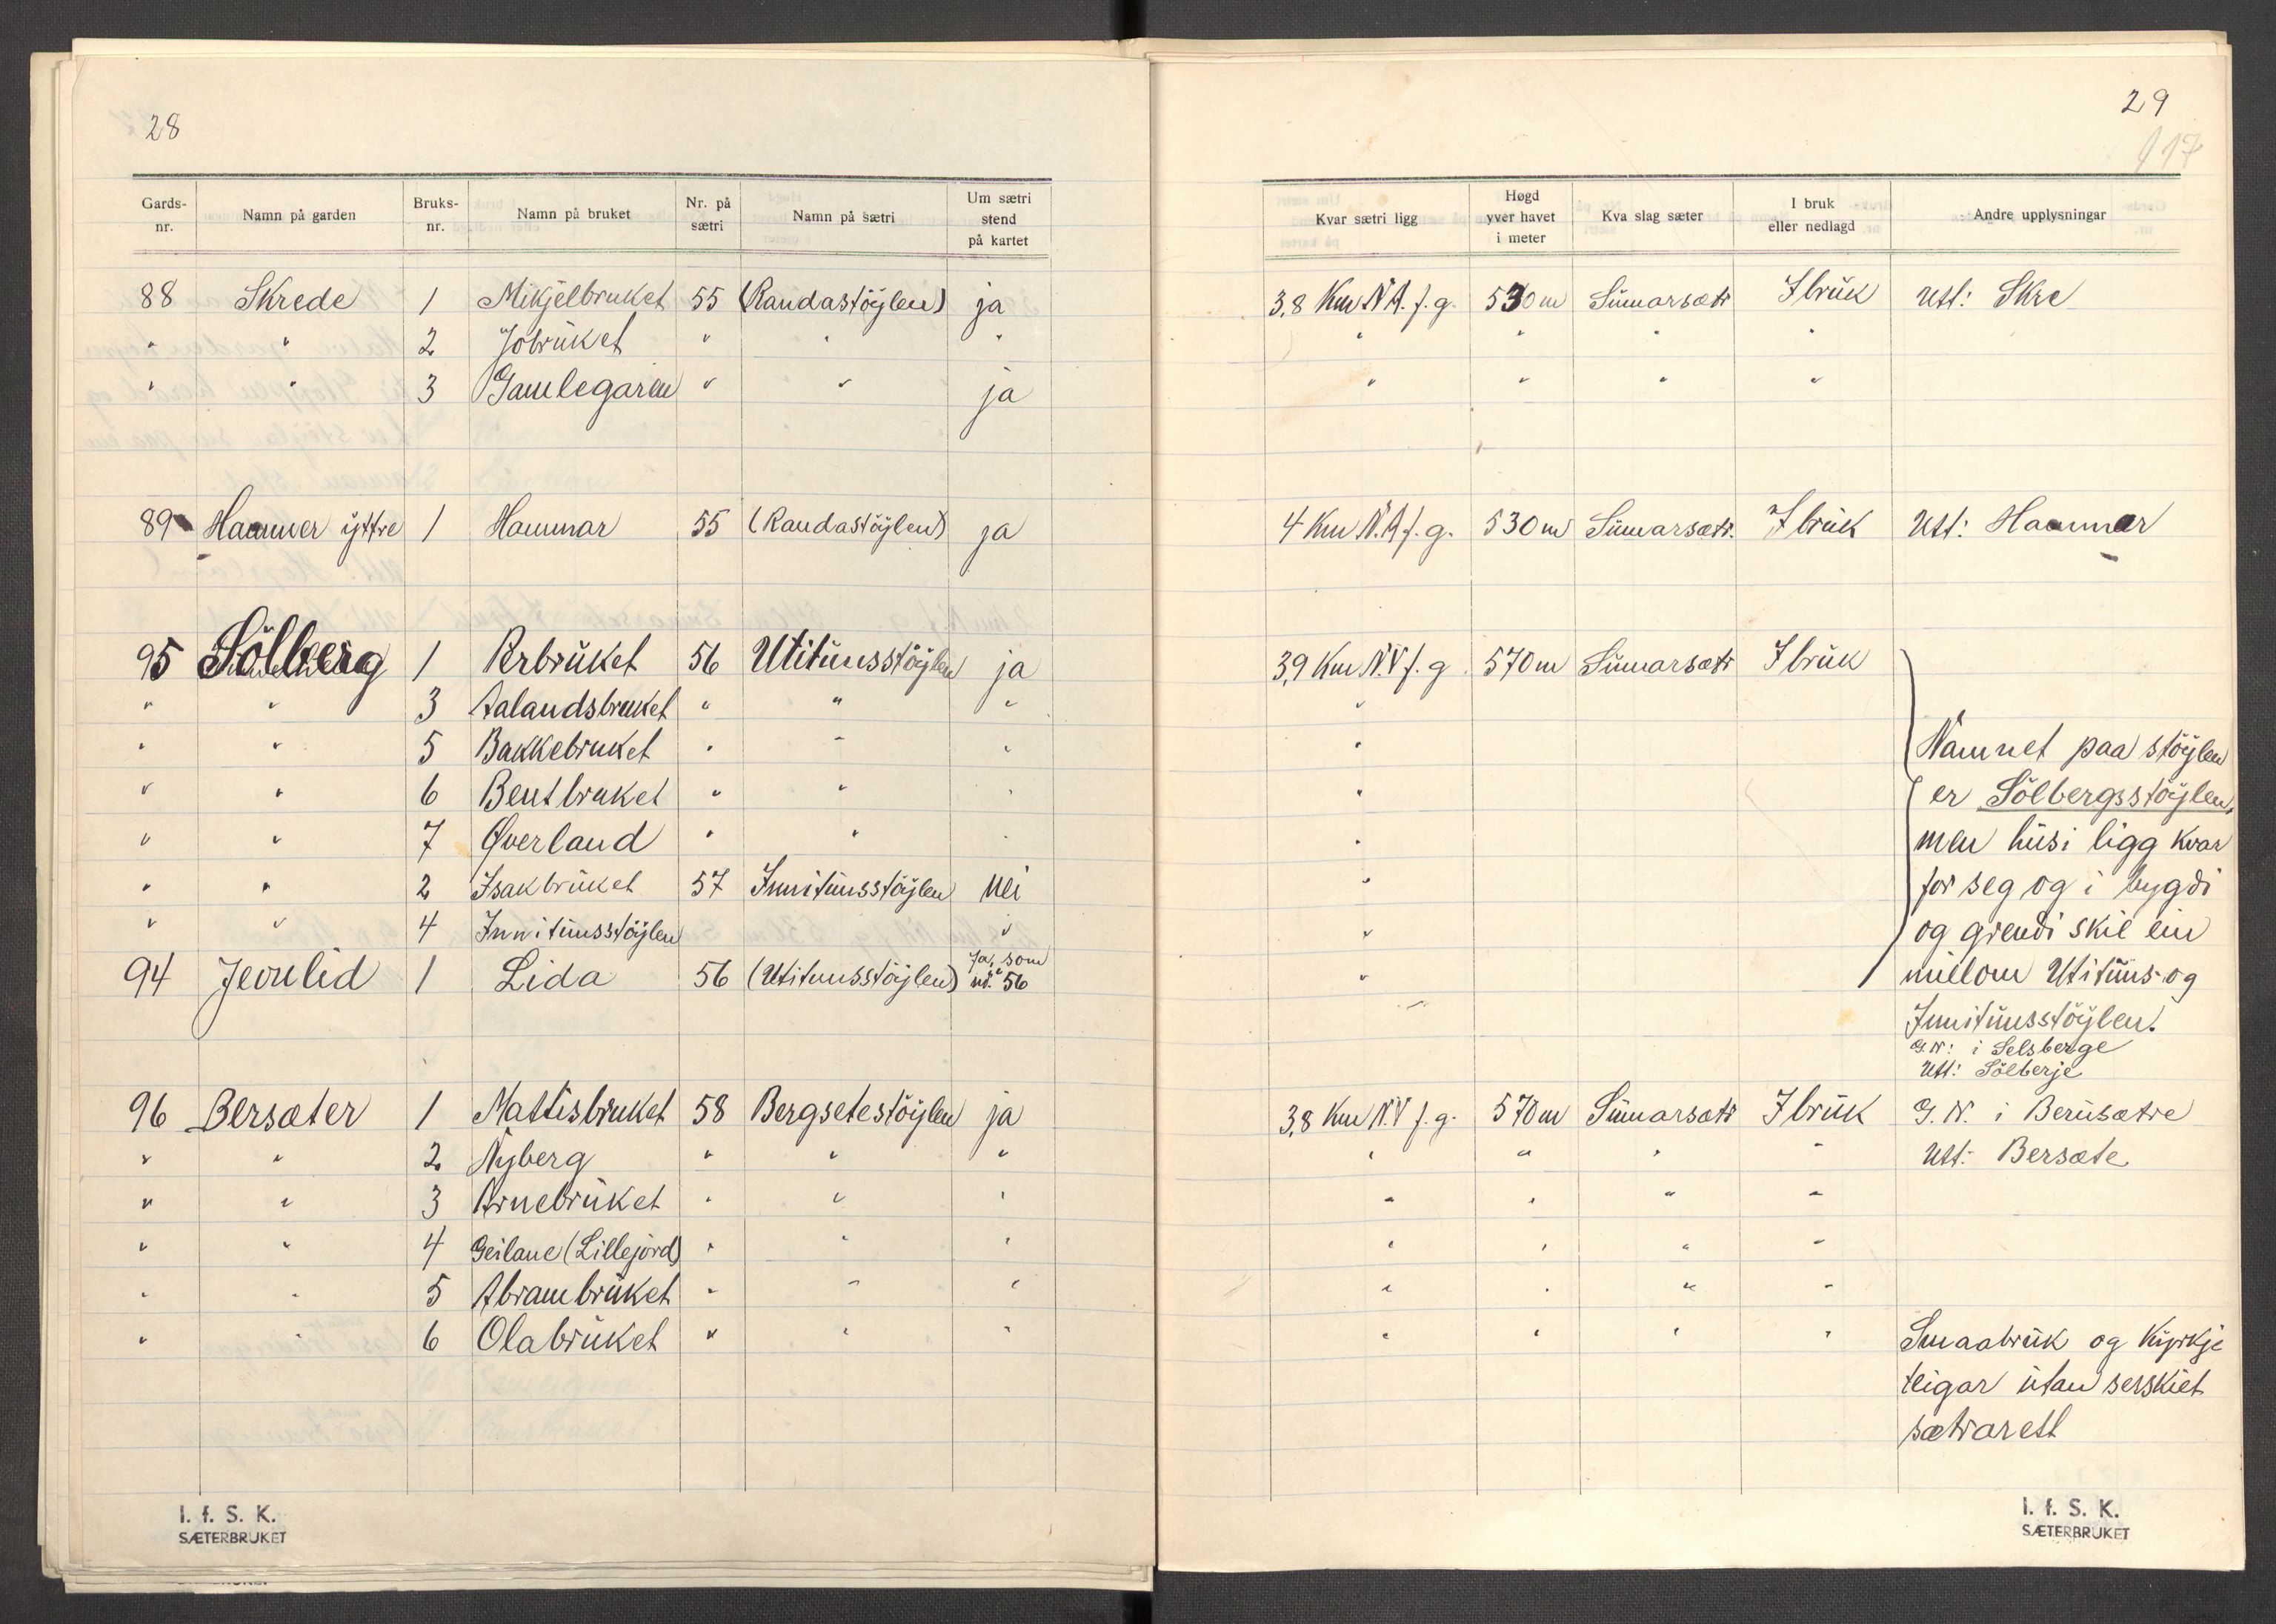 28
Gards-nr. Namn på garden Bruks-nr. Namn på bruket Nr. på sætri Namn på sætri Um sætri stend på kartet
88 Skrede 1 Mikjelbruket 55 (Randastöylen) ja
" " 2 Jobruket " " "
" " 3 Gamlegaren " " ja
89 Hammer yttre 1 Hammar 55 (Randastöylen) ja
95 Sölberg 1 Perbruket 56 Utitunsstöylen ja
" " 3 Aalandsbruket " " "
" " 5 Bakkebruket " " "
" " 6 Bentbruket " " "
" " 7 Øverland " " "
" " 2 Isakbruket 57 Innitunsstöylen nei
" " 4 Innitunsstöylen "
94 1 Lida 56 (Utitunsstöylen) Ja, som nr. 56
96 Bersæter 1 Mattisbruket 58 Bergsetestöylen ja
" " 2 Nyberg " " "
" " 3 Arnebruket " " "
" " 4 Geilane (Lillejord) " " "
" " 5 Abrambruket " " "
" " 6 Olabruket " " "
I. f. S. K.
SÆTERBRUKET
29
117
Kvar sætri ligg Høgd yver havet i meter Kva slag sæter I bruk eller nedlagd Andre upplysningar
3,8 Km N.A. f. g. 530 m Sumarsætr I bruk Utt: Skre
" " " "
" " " "
4 Km N.A f. g. 530 m Sumarsætr. I bruk Utt: Hammar
3,9 Km N.V f. g. 570 m Sumarsætr I bruk
"
" Namnet paa stöylen
" er Sölbergsstöylen,
" men husi ligg kvar
" for seg og i bygdi
" og grendi skil ein
" millom Utituns- og
Innitunsstöylen.
G.N: i Selsberge
Utt: Sölberje
3,8 Km N.V f. g. 570 m Sumarsætr I bruk G. N. i Berusætre
" " " " Utt: Bersæte
" " " "
" " " "
" " " "
" " " " Smaabruk og Kyrkje
teigar utan serskiet
sætrarett
I. f. S. K.
SÆTERBRUKET